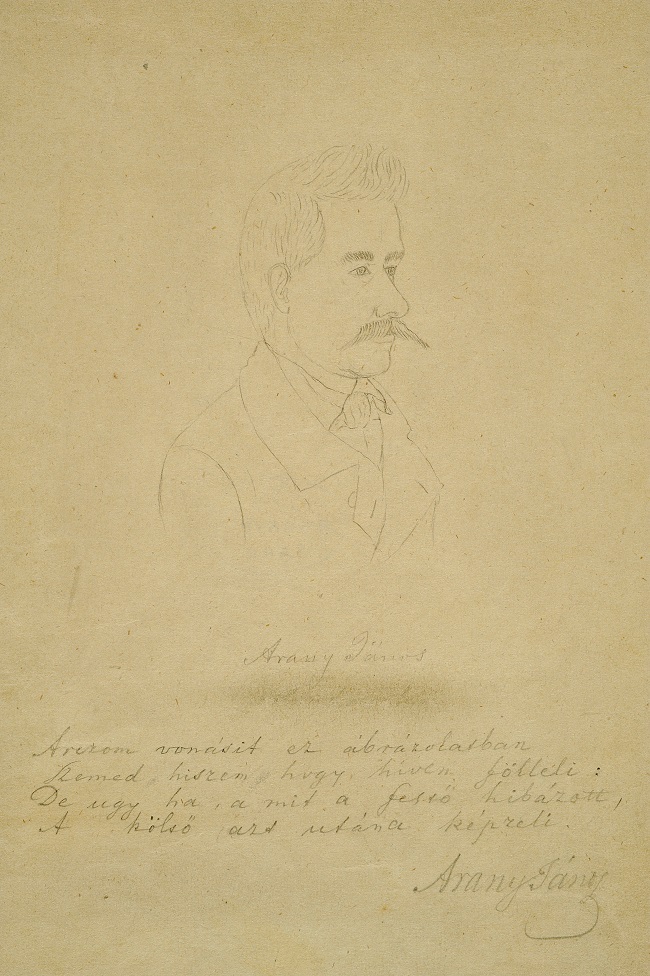 Arany János
Arczom vonásit ez ábrázolatban
Szemed, hiszem, hogy híven fölléli:
De ugy ha, a mit a festő hibázott,
A költő azt utána képzeli.
Arany János